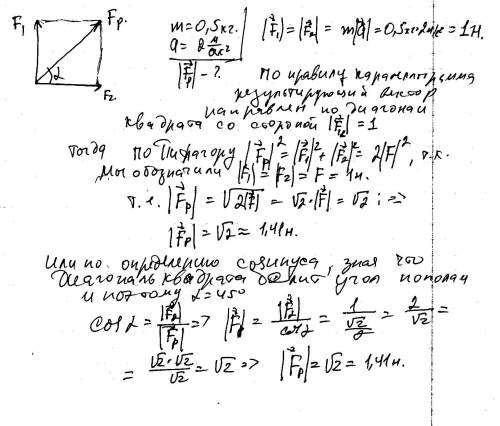 F₁ Fр.
α
F₂
m=0,5кг.
a=2 м/сек²
|F⃗р| - ?
|F⃗₁|=|F⃗₂|= m|a⃗|=0,5кг·2м/с²=1Н.
По правилу параллелограмма
результирующий вектор
направлен по диагонали
квадрата со стороной |F⃗₂|=1
тогда по Пифагору |F⃗р|²=|F⃗₁|²+|F⃗₂|²=2|F|², т.к.
Мы обозначили |F₁|=|F₂|=F=1н.
т.е. |F⃗р|=√2|F⃗|²=√2·|F⃗|=√2 ; =>
|F⃗р|=√2≈1,41н.
Или по определению косинуса, зная что
диагональ квадрата делит угол пополам
и поэтому α=45°
cosα=|F⃗₂|/|F⃗р| => |F⃗р|=|F⃗₂|/cosα=1/(√2/2)=2/√2=
=√2·√2/√2=√2 => |F⃗р|=√2=1,41н.